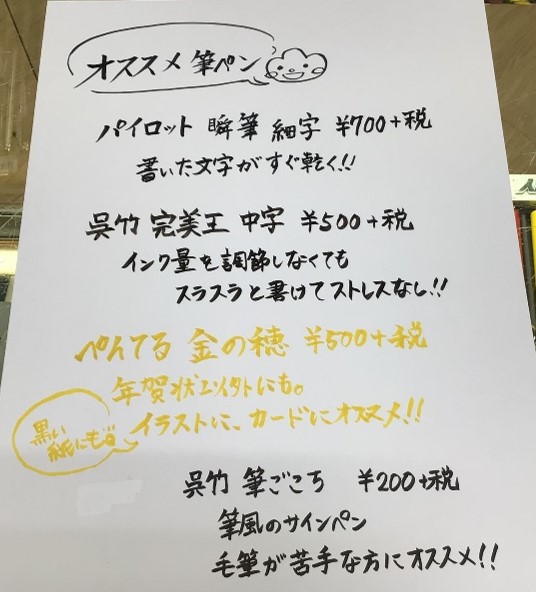 オススメ筆ペン
パイロット 瞬筆 細字 ¥700+税
書いた文字がすぐ乾く!!
呉竹 完美王 中字 ¥500+税
インク量を調節しなくても
スラスラと書けてストレスなし!!
ぺんてる 金の穂 ¥500+税
年賀状以外にも。
イラストに、カードにオススメ!!
黒い
紙にも
呉竹 筆ごこち ¥200+税
筆風のサインペン
毛筆が苦手な方にオススメ!!